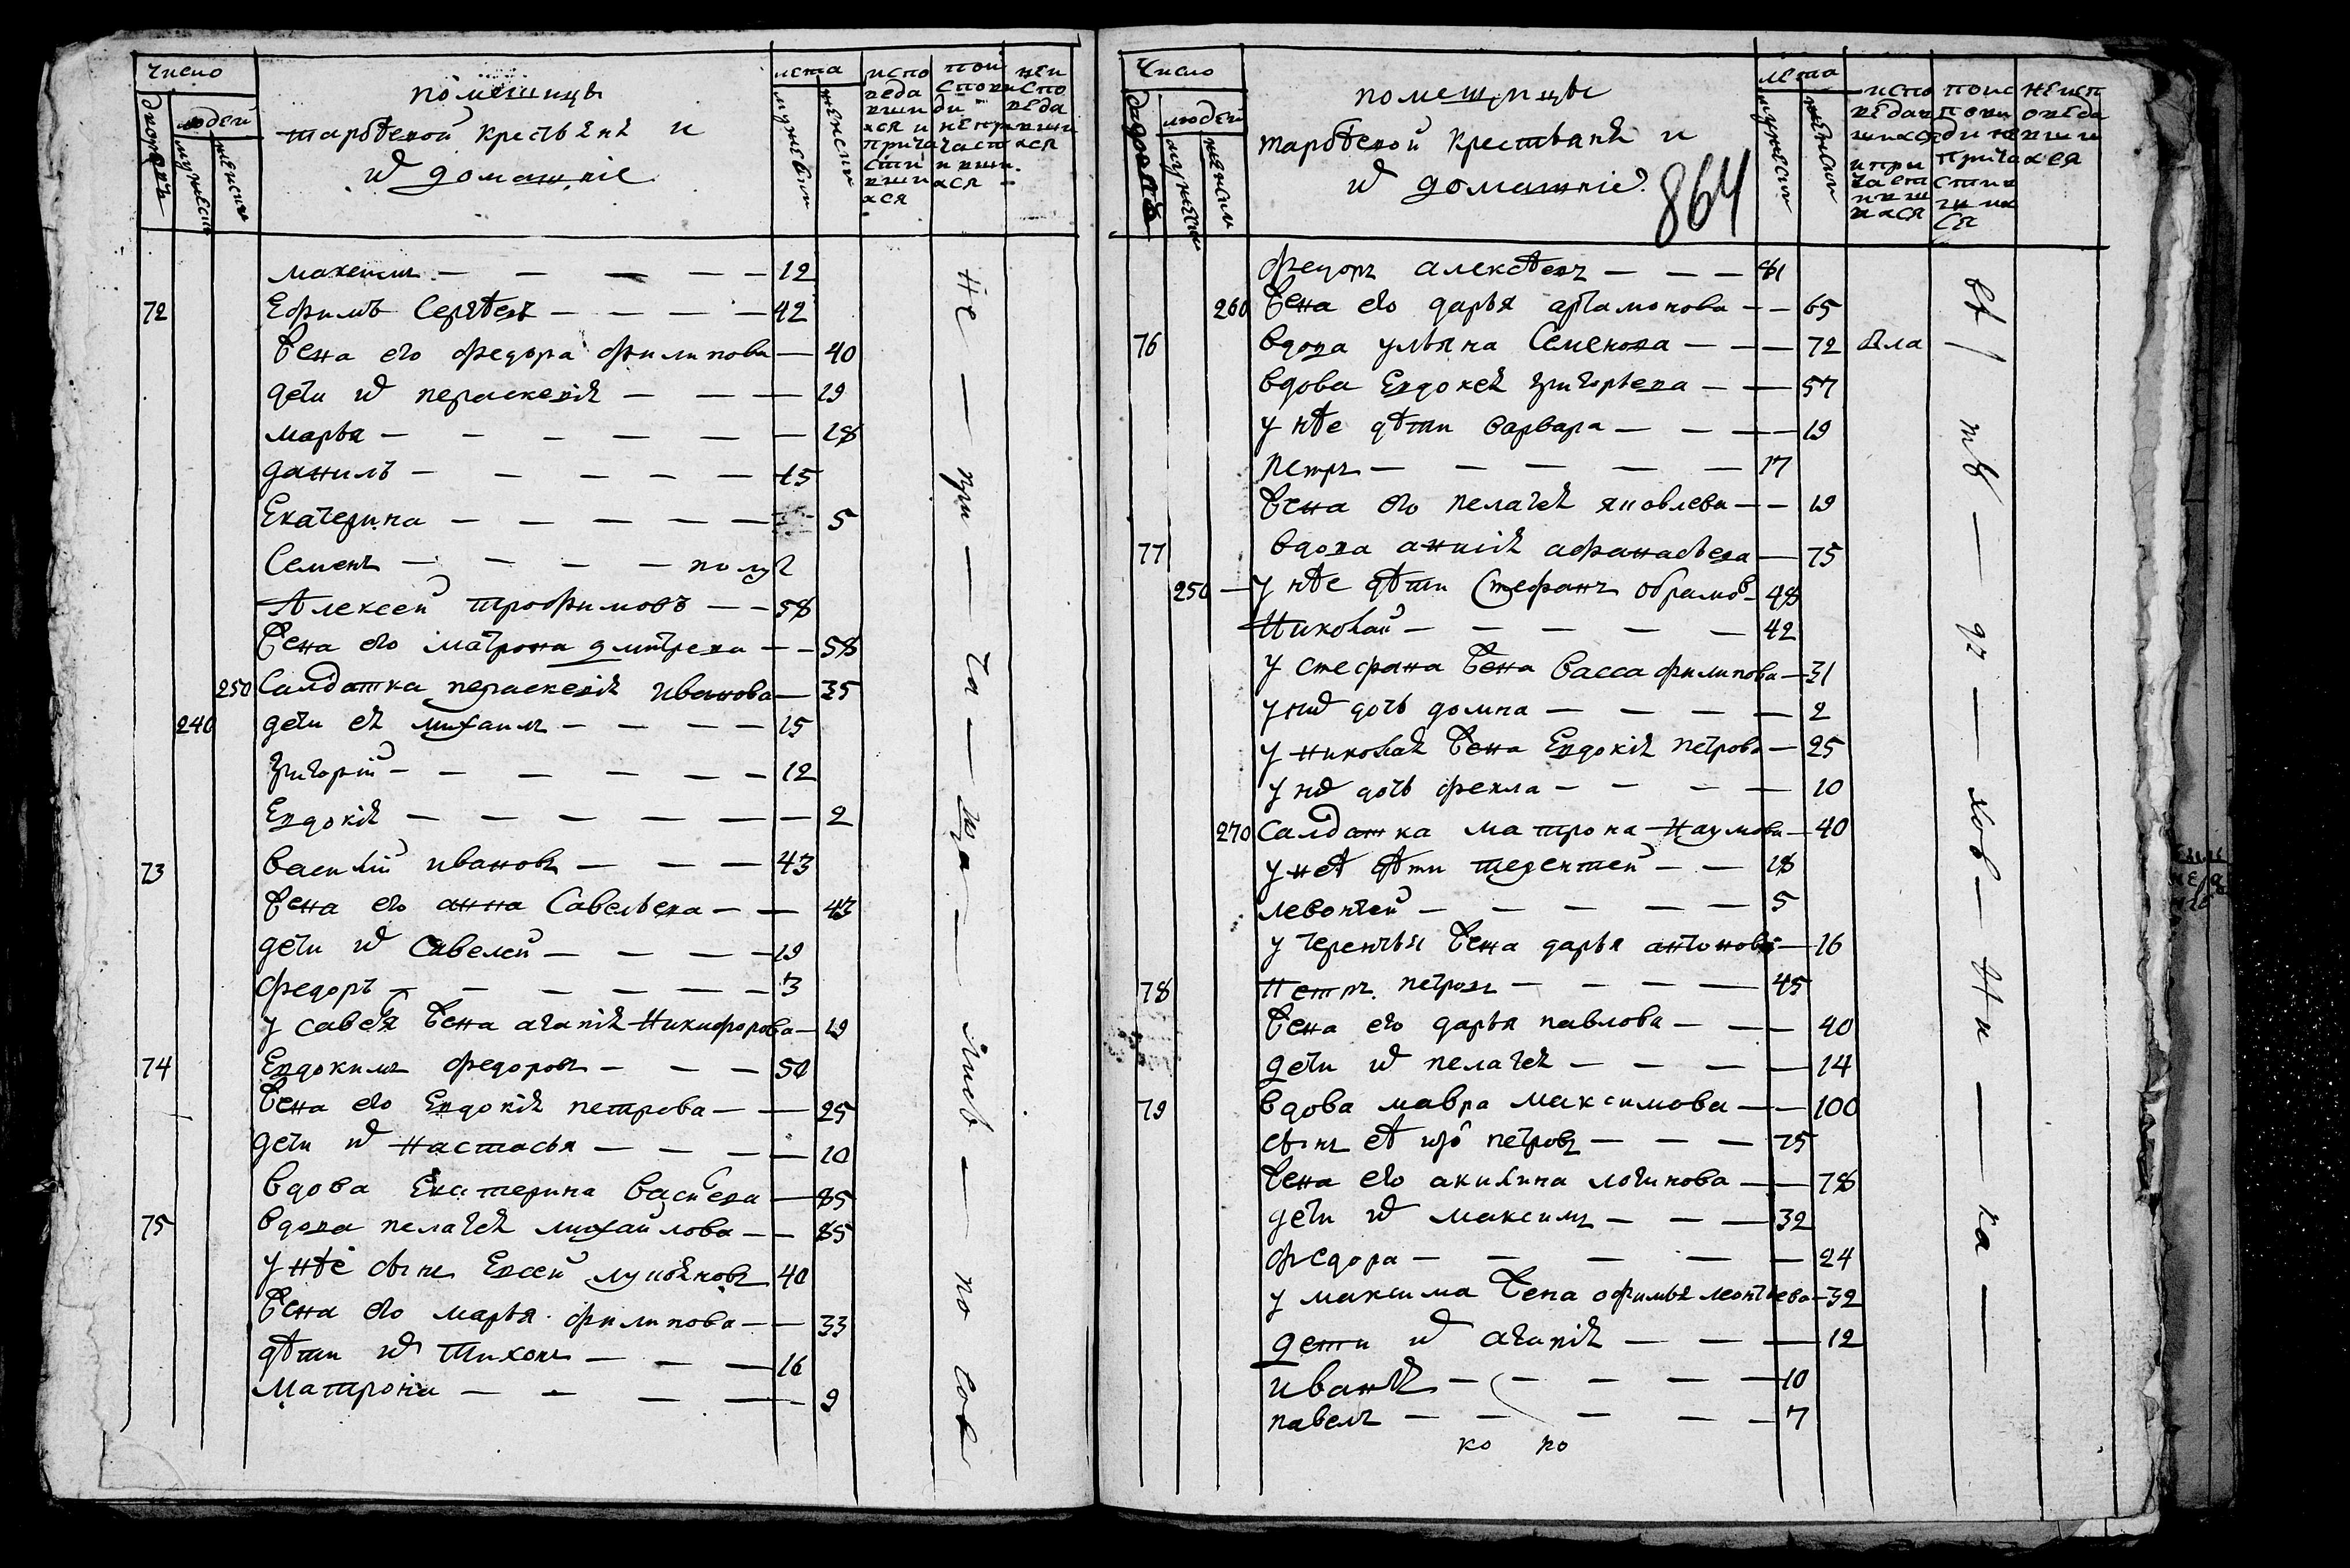 число
дворовъ
людей
мужеска
женска
помещицы
тарбѣевой крестьянѣ и
их домашніе
лета
мужеска
женска
испо
веда
вши
ся и
прича
сти
вши
ся
пои
спови
ди
непр
част
ивши
ся
неи
спо
веда
вши
ся
максим — 12
72 Ефимъ Сергѣев — 42
жена его федора филипова — 40
дети их пераскевия — 19
марья — 18
данилъ — 15
Екатерина — 5
Семенъ — полу 2
Алексей трофимовъ — 58
жена его матрона дмитрева — 58
250 Салдатка пераскевия иванова — 35
240 дети ея михаилъ — 15
григорій — 12
Евдокия — 2
73 василій ивановъ — 43
жена его анна Савельева — 43
дети их Савелей — 19
федоръ — 3
у савеля жена агапия Никифорова — 19
74 Евдокимъ федоровъ — 50
жена его Евдокия петрова — 25
дети их настасья — 10
вдова Екатерина Василева — 85
75 вдова пелагея михайлова — 85
у нѣе сынъ Евсей лукояновъ 40
жена его марья филипова — 33
дѣти их тихонъ — 16
матрона — 9
не — при — ча — ща — лись — по сов
число
дворовъ
людей
мужеска
женска
помещицы
тарбѣевой крестьянѣ и
их домашніе
864
лета
мужеска
женска
испо
ведав
шихся
и при
част
ивш
ихся
поис
пови
ди не
прича
сти в
ши
ся
неисп
оведа
вши
хся
федоръ алексѣевъ — 81
260 жена его дарья артамонова — 65
76 вдова ульяна Семенова — 72 была
вдова Евдокея григорьева — 57
у нѣе дѣти варвара — 19
петръ — 17
жена его пелагея яковлева — 19
77 вдова анисия афанасьева — 75
250 — у нѣе дѣти Стефанъ обрамов — 48
Николай — 42
у стефана жена васса филипова — 31
у них дочь домна — 2
у николая жена Евдокия петрова — 25
у них дочь фекла — 10
270 Салдатка матрона Наумова — 40
у неѣ дѣти терентей — 18
левонтей — 5
у терентья жена дарья антонова — 16
78 Петръ петровъ — 45
жена его дарья павлова — 40
дети их пелагея — 14
79 вдова мавра максимова — 100
сынъ еѣ петровъ — 75
жена его акилина логинова — 78
дети их максимъ — 32
федора — 24
у максима жена офимья леонтьева — 32
дети их агапия — 12
иванъ — 10
павелъ — 7
ко но
ет / тв — ду — хов — ни — ка —